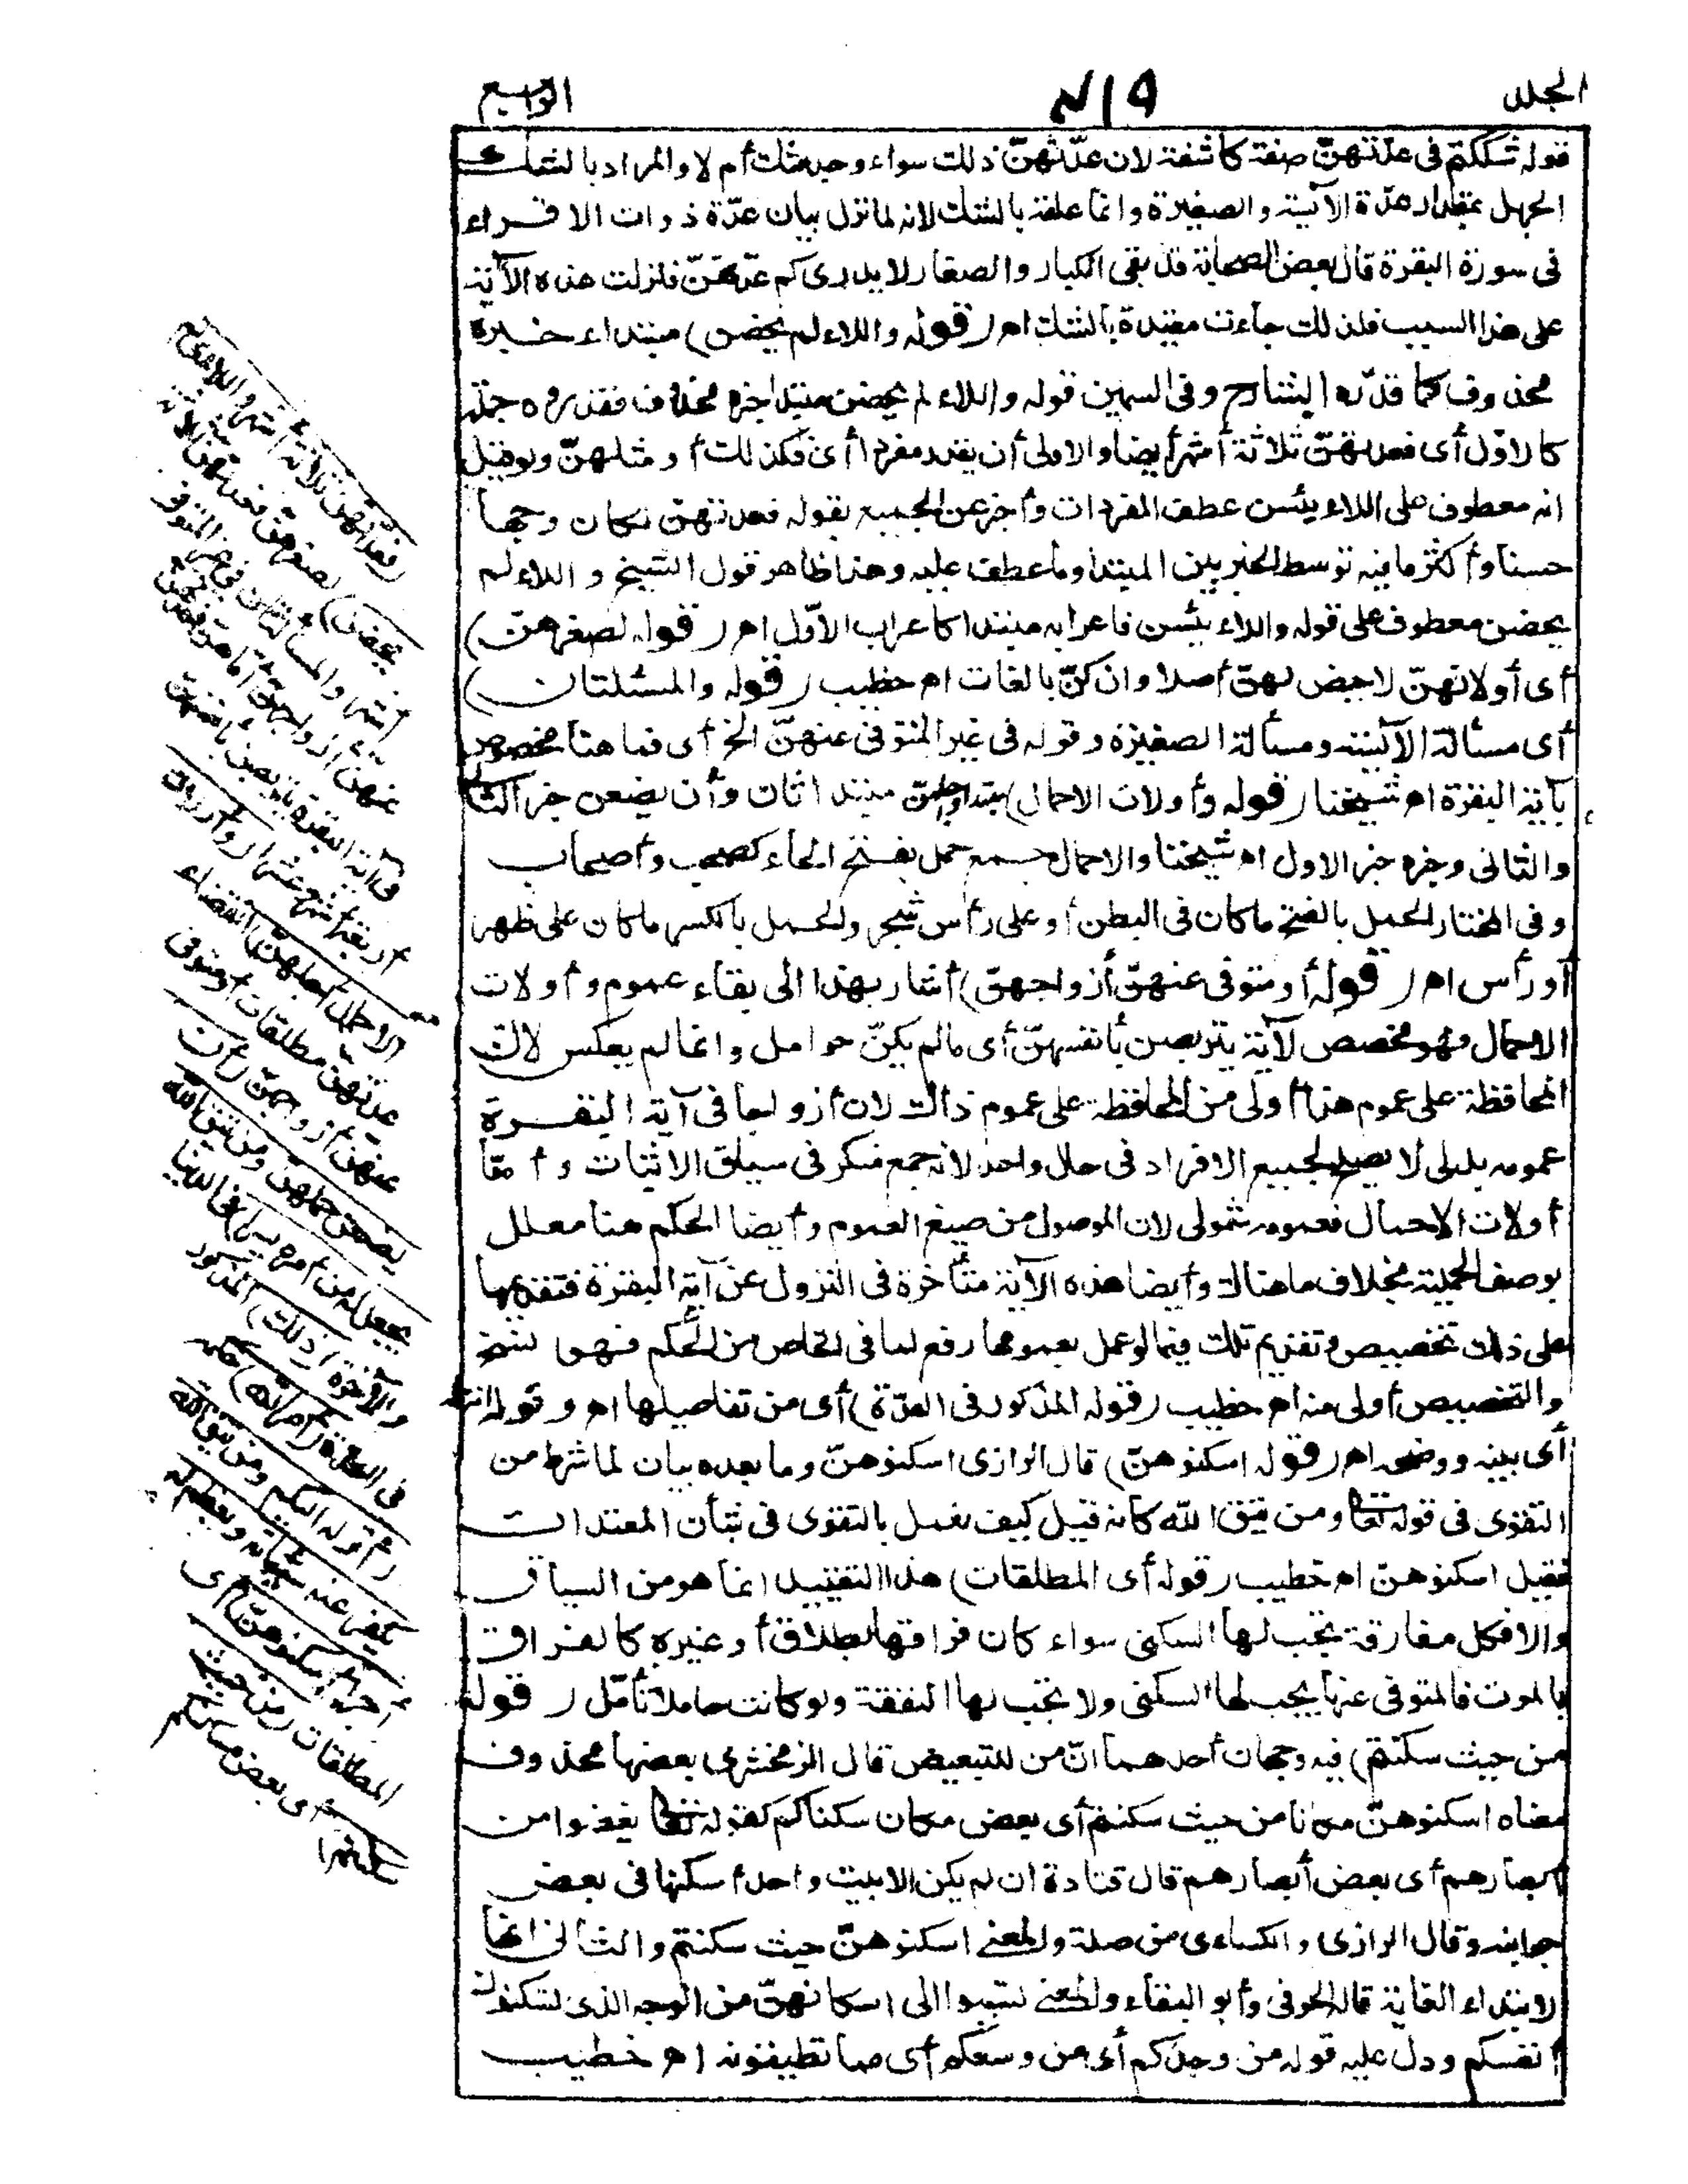 المجلد
الرابع
قوله شككتم فى عدتهنّ صفة كاشفة لان عدّتهنّ ذلك سواء وجد شك أم لا والمراد بالشك
الجهل بمقدار عدّة الآيسة والصغيرة وانما علقه بالشك لانه لما نزل بيان عدّة ذوات الاقراء
فى سورة البقرة قال بعض الصحابة قد بقى الكبار والصغار لا يدرى كم عدّتهنّ فنزلت هذه الآية
على هذا السبب فلذلك جاءت مقيدة بالشك اه (قوله واللاء لم يحضن) مبتداء خبره
محذوف كما قدّره الشارح وفى السمين قوله واللاء لم يحضن مبتدا خبره محذوف فقدروه جملة
كالاوّل أى فعدتهنّ ثلاثة أشهر أيضا والاولى أن يقدر مفردا أى فكذلك أو مثلهنّ ولو قيل
انه معطوف على اللاء يئسن عطف المفردات وأخبر عن الجميع بقوله فعدتهن لكان وجها
حسنا وأكثر ما فيه توسط الخبر بين المبتدا وما عطف عليه وهذا ظاهر قول الشيخ واللاء لم
يحضن معطوف على قوله واللاء يئسن فاعرابه مبتدا كاعراب الاوّل اه (قوله لصغرهنّ)
أى أو لانهنّ لا حيض لهنّ أصلا وان كنّ بالغات اه خطيب (قوله والمسئلتان)
أى مسألة الآيسة ومسألة الصغيرة وقوله فى غير المتوفى عنهنّ الخ أى فما هنا مخصوص
بآية البقرة اه شيخنا (قوله وأولات الاحمال) مبتدا وأجلهنّ مبتدا ثان وأن يضعن خبر الثانى
والثانى وخبره خبر الاول اه شيخنا والاحمال جمع حمل بفتح الحاء كصحب وأصحاب
وفى المختار الحمل بالفتح ما كان فى البطن أو على رأس شجر والحمل بالكسر ما كان على ظهر
أو رأس اه (قوله أو متوفى عنهنّ أزواجهنّ) أشار بهذا الى بقاء عموم وأولات
الاحمال فهو مخصص لآية يتربصن بأنفسهنّ أى ما لم يكنّ حوامل وانما لم يعكس لانّ
المحافظة على عموم هذا أولى من المحافظة على عموم ذاك لان أزواجا فى آية البقرة
عمومه بدلى لا يصلح لجميع الافراد فى حال واحد لانه جمع منكر فى سياق الاثبات وأمّا
أولات الاحمال فعمومه شمولى لان الموصول من صيغ العموم وأيضا الحكم هنا معلل
بوصف الحملية بخلاف ما هناك وأيضا هذه الآية متأخرة فى النزول عن آية البقرة فتقديمها
على ذلك تخصيص وتقديم تلك فيما لو عمل بعمومها رفع لما فى الخاص من الحكم فهو نسخ
والتخصيص أولى منه اه خطيب (قوله المذكور فى العدّة) أى من تفاصيلها اه وقوله أنزله
أى بينه ووضحه اه (قوله اسكنوهنّ) قال الرازى اسكنوهنّ وما بعده بيان لما شرط من
التقوى فى قوله تعالى ومن يتق الله كأنه قيل كيف نعمل بالتقوى فى شأن المعتدات
فقيل اسكنوهنّ اه خطيب (قوله أى المطلقات) هذا التقييد انما هو من السياق
والا فكل مفارقة يجب لها السكنى سواء كان فراقها بطلاق أو غيره كالفراق
بالموت فالمتوفى عنها يجب لها السكنى ولا تجب لها النفقة ولو كانت حاملا تأمّل (قوله
من حيث سكنتم) فيه وجهان أحدهما انّ من للتبعيض قال الزمخشرى بعضها محذوف
معناه اسكنوهنّ مكانا من حيث سكنتم أى بعض مكان سكناكم كقوله تعالى يغضوا من
أبصارهم أى بعض أبصارهم قال قتادة ان لم يكن الا بيت واحد أسكنها فى بعض
جوانبه وقال الرازى والكساءى من صلة والمعنى اسكنوهنّ حيث سكنتم والثانى انها
لابتداء الغاية قاله الحوفى وأبو البقاء والمعنى تسببوا الى اسكانهنّ من الوجه الذى تسكنون
أنفسكم ودلّ عليه قوله من وجدكم أى من وسعكم أى مما تطيقونه اه خطيب
(فعدتهنّ ثلاثة أشهر واللاءى لم
يحضن) لصغرهنّ فعدتهنّ ثلاثة
أشهر والمسألتان فى غير المتوفى
عنهنّ أزواجهنّ أما هنّ فعدتهنّ
فى آية البقرة يتربصن بأنفسهنّ
أربعة أشهر وعشرا (وأولات
الاحمال أجلهنّ) انقضاء
عدتهنّ مطلقات أو متوفى
عنهنّ أزواجهنّ (أن
يضعن حملهنّ ومن يتق الله
يجعل له من أمره يسرا) فى الدنيا
والآخرة (ذلك) المذكور
فى العدّة (أمر الله) حكمه
(أنزله اليكم ومن يتق الله
يكفر عنه سيآته ويعظم له
أجرا اسكنوهنّ) أى
المطلقات (من حيث
سكنتم) أى بعض مساكنكم